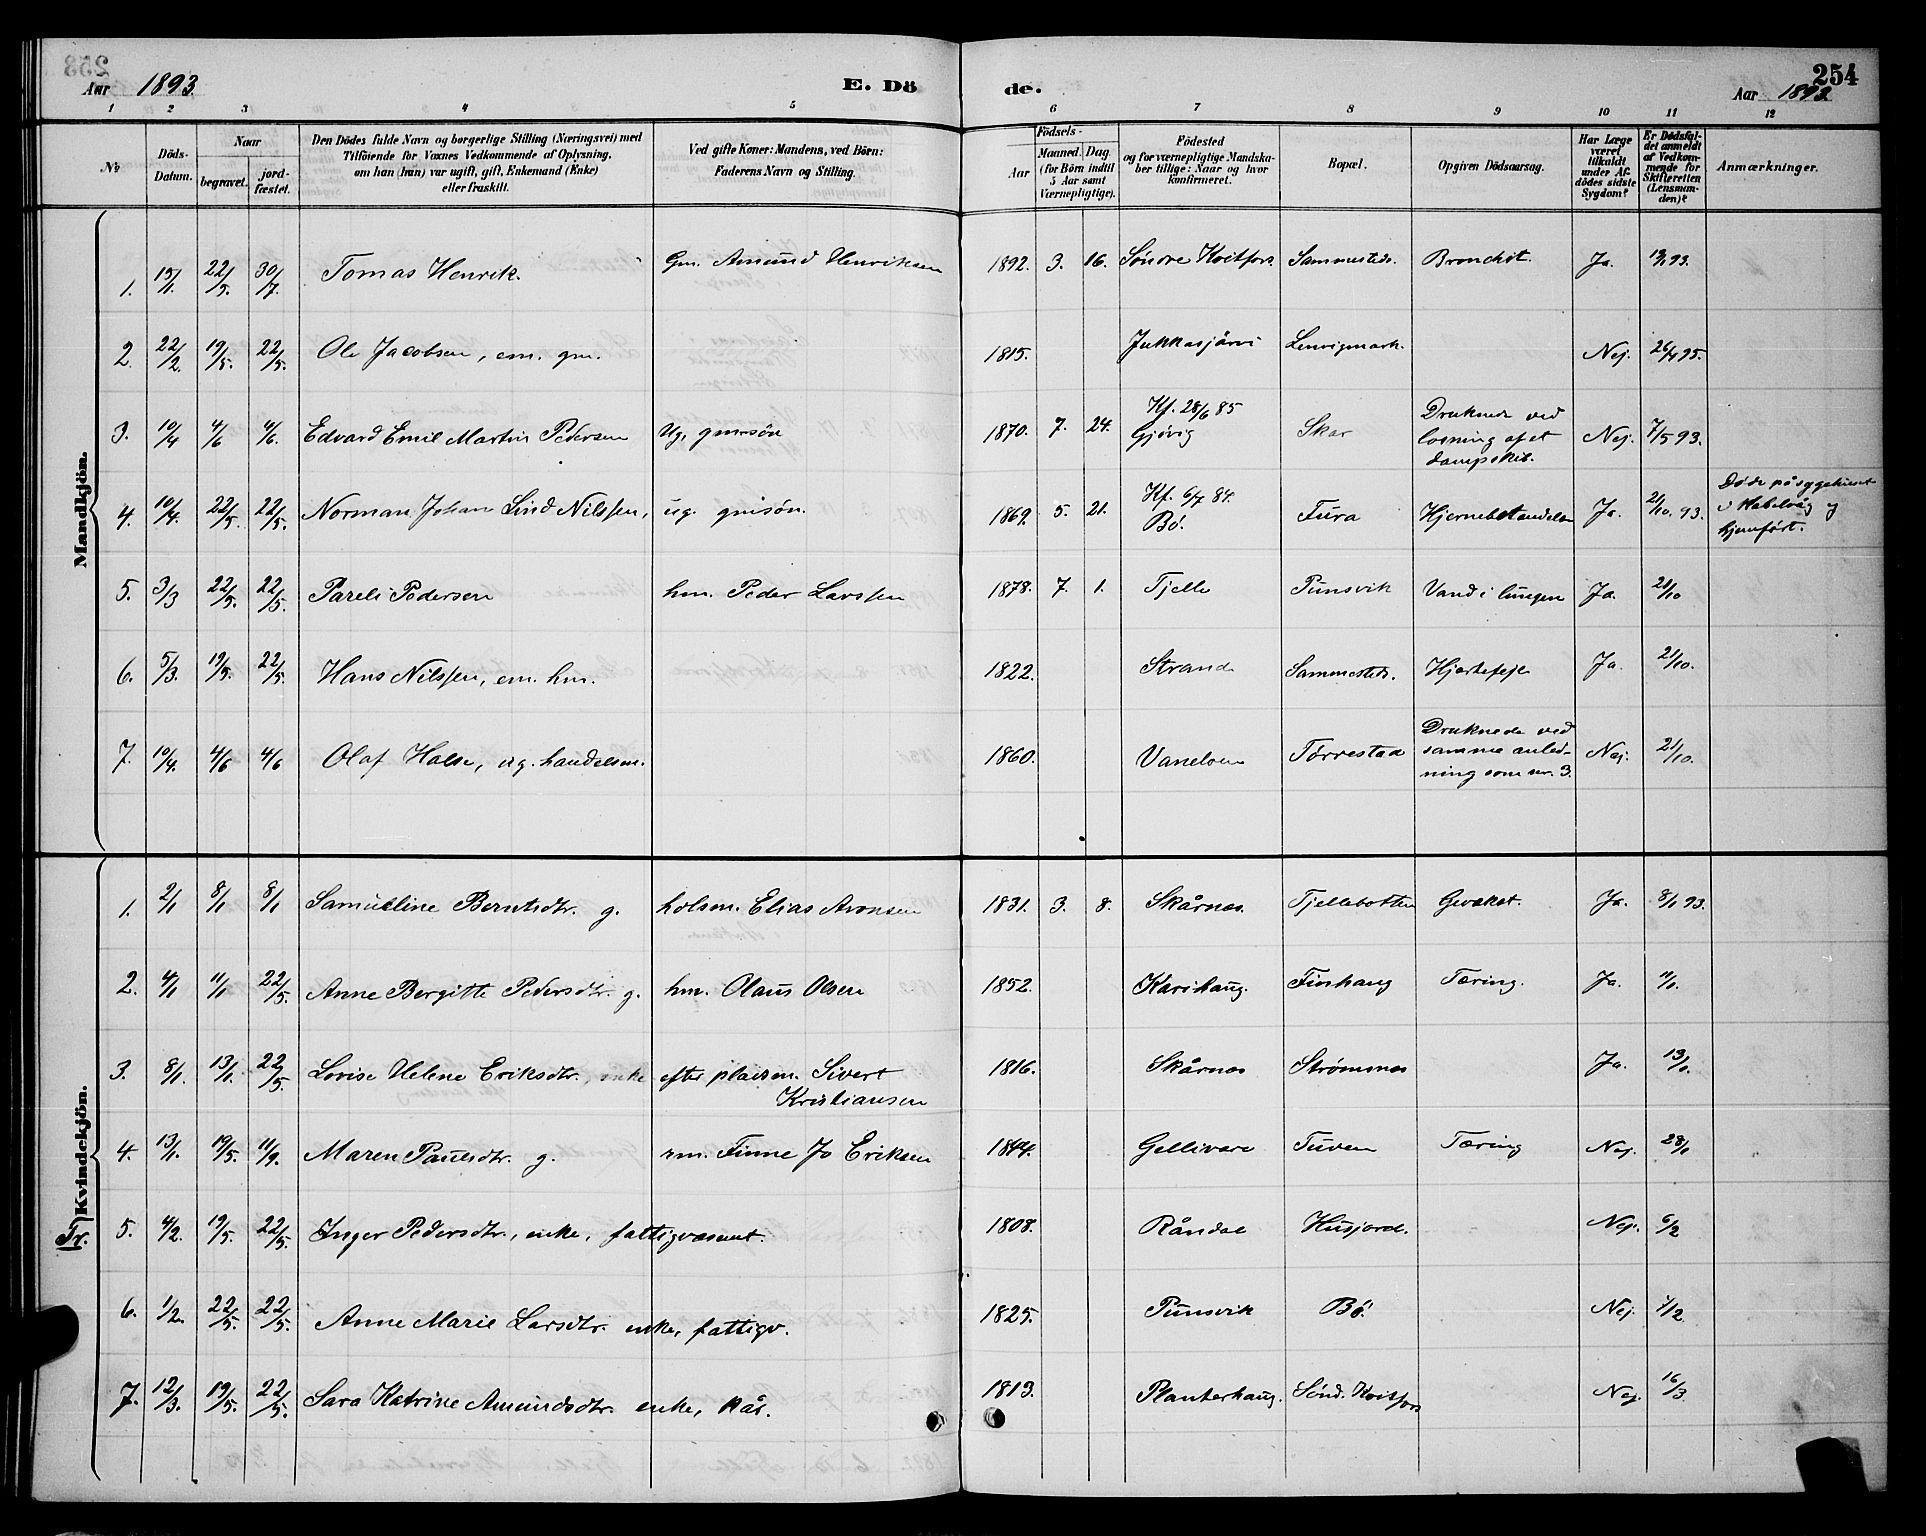 253
Aar 1893.
E. Dö
de.
254
Aar 1893.
1 2 3 4 5 6 7 8 9 10 11 12
№
Döds-
Datum.
Naar
begravet.
jord-
fæstet.
Den Dödes fulde Navn og borgerlige Stilling (Næringsvei) med
Tilföiende for Voxnes Vedkommende af Oplysning,
om han (hun) var ugift, gift, Enkemand (Enke)
eller fraskilt.
Ved gifte Koner: Mandens, ved Börn:
Faderens Navn og Stilling.
Födsels-
Aar
Maaned. Dag.
(for Börn indtil
5 Aar samt
Værnepligtige).
Födested
og for værnepligtige Mandska-
ber tillige: Naar og hvor
konfirmeret.
Bopæl.
Opgiven Dödsaarsag.
Har Læge
været
tilkaldt
under Af-
dödes sidste
Sygdom?
Er Dödsfal-
det anmeldt
af Vedkom-
mende for
Skifteretten
(Lensman-
den)?
Anmærkninger.
Mandkjön.
1. 22/5 30/7 Tomas Henrik. Gm. Amund Henriksen 1892. 3. 16. Söndre Kvitfors. Sammesteds. Bronchit. Ja.
2. 22/2. 19/5. 22/5. Ole Jacobsen, em. gm. 1815. Jukkasjärvi Lenvigmark. Nej.
3. 10/4 4/6 4/6. Edvard Emil Martin Pedersen Ug. gmrsön 1870. 7. 24. Kf. 28/6 85
Gjövig Skar Druknede ved
losning af et
dampskib. Nej. 7/5 93.
4. 10/4. 22/5. 22/5. Norman Johan Lind Nilssen, ug. gmsön. 1869. 5. 21. Kf. 6/7 84.
Bö. Fura Hjernebetændelse Ja. 21/10. 93. Döde på sygehuset
i Kabelvåg og
hjemfört.
5. 3/3 22/5. 22/5. Pareli Pedersen hm. Peder Larssen 1878. 7. 1. Tjelle Punsvik Vand i lungen Ja. 21/10
6. 5/3. 19/5. 22/5. Hans Nilssen, em. hm. 1822. Strand Sammesteds. Hjertefejl Ja. 21/10.
7. 10/4. 4/6 4/6 Olaf Halse, ug. handelsm. 1860. Tørrestad Druknede ved
samme anled-
ning som nr. 3. Nej. 21/10.
Kvindekjön.
1. 2/1 8/1 8/1 Samueline Berntsdtr. g. Elias Aronsen 1831. 3. 8. Skårnes. Tjellebotten Ja. 8/1 93.
2. 4/1 11/1 22/5. Anne Bergitte Pedersdtr. g. hm. Olaus Olsen 1852. Karihaug. Finhaug Tæring. Ja.
3. 8/1. 13/1. 22/5. Lovise Helene Eriksdtr., enke efter pladsm. Sivert
Kristiansen 1816. Skårnes Strømsnes Ja. 13/1.
4. 13/1. 19/5. 11/9. Maren Paulsdtr. g. rm. Finne Jo Eriksen 1844. Gellivare Tuven Tæring Nej. 28/1
5. 4/2. 19/5. 22/5. Inger Pedersdtr., enke, fattigvæsenet. 1808. Råndal Husjord. Nej. 6/2
6. 1/2. 22/5. 22/5. Anne Marie Larsdtr. enke, fattigv. 1825. Punsvik Bö. Nej.
7. 12/3. 19/5. 22/5. Sara Katrine Amundsdtr. enke, kår. 1813. Planterhaug. Sönd. Kvitfors Nej. 16/3